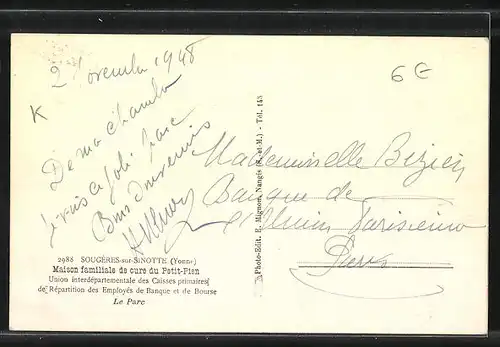 2 Novembre 1948
6 €
K
De ma chambre
je vois ce joli parc
Bons souvenirs
Mademoiselle Bezien
Banque de
l'Union Parisienne
Paris
2988 SOUGÈRES-sur-SINOTTE (Yonne)
Maison familiale de cure du Petit-Pien
Union interdépartementale des Caisses primaires
de Répartition des Employés de Banque et de Bourse
Le Parc
Photo-Edit. E. Mignon, Nangis (S.-et-M.) - Tél. 143